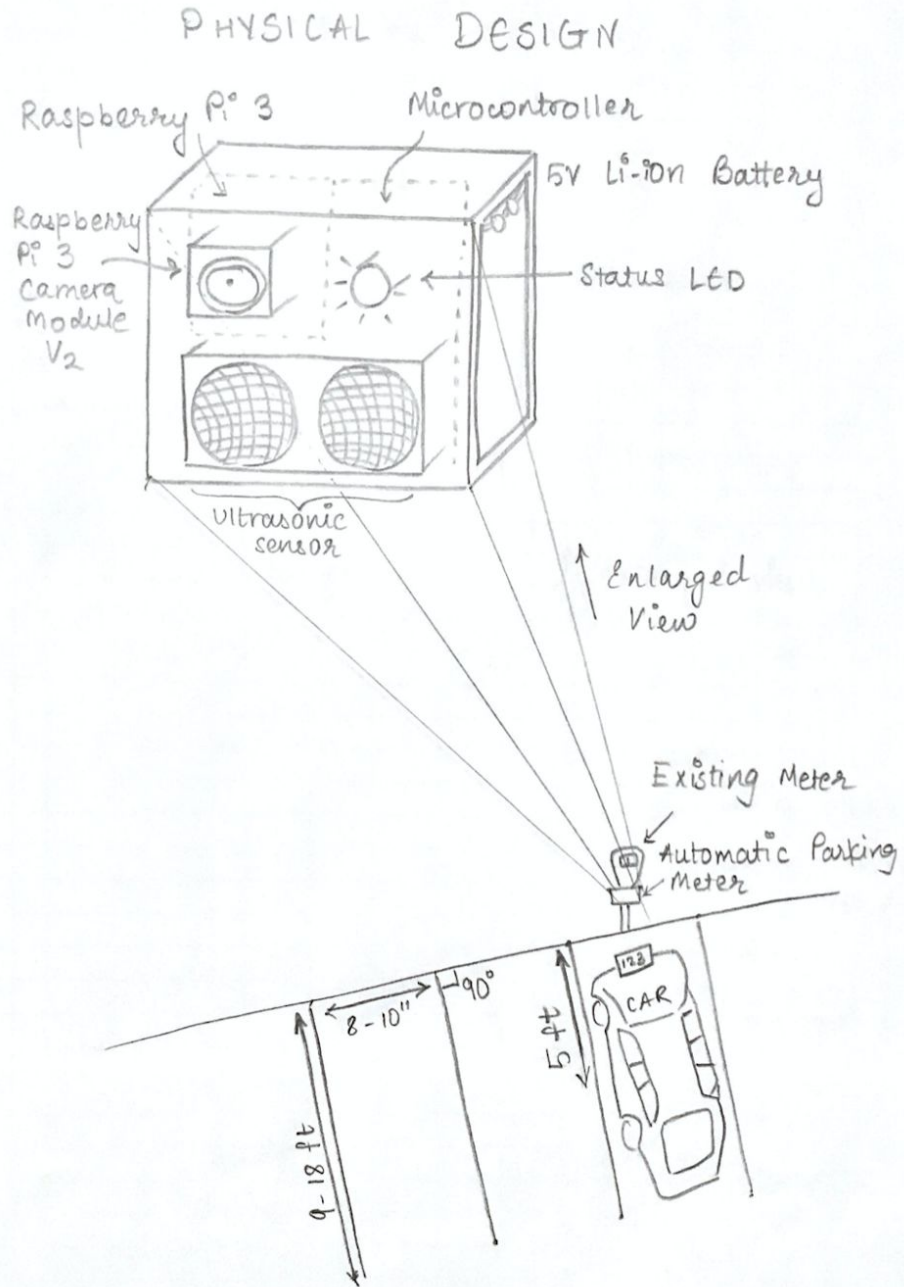 PHYSICAL DESIGN
Raspberry Pi 3
Microcontroller
5V Li-ion Battery
Raspberry
Pi 3
Camera
Module
V2
Status LED
Ultrasonic
sensor
Enlarged
View
Existing Meter
Automatic Parking
Meter
90°
8-10"
5 ft
123
CAR
9-18 ft